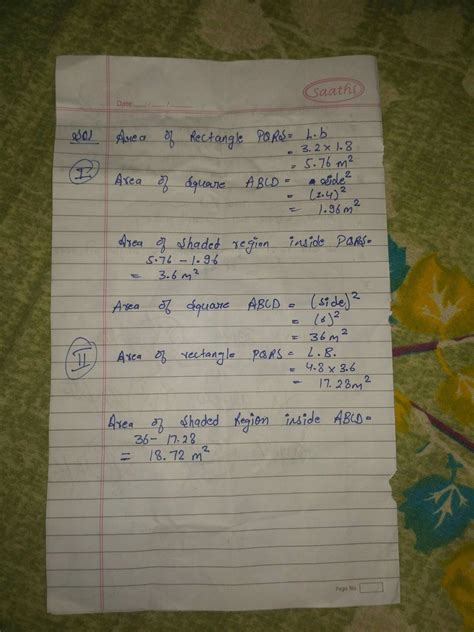 saathi
Date
Sol Area of Rectangle PQRS = L.b
= 3.2 x 1.8
= 5.76 m²
I
Area of Square ABCD = side²
= (1.4)²
= 1.96 m²
Area of Shaded region inside PQRS =
5.76 - 1.96
= 3.6 m²
Area of Square ABCD = (side)²
= (6)²
= 36 m²
II Area of rectangle PQRS = L.B.
= 4.8 x 3.6
= 17.28 m²
Area of Shaded Region inside ABCD =
36 - 17.28
= 18.72 m²
Page No.